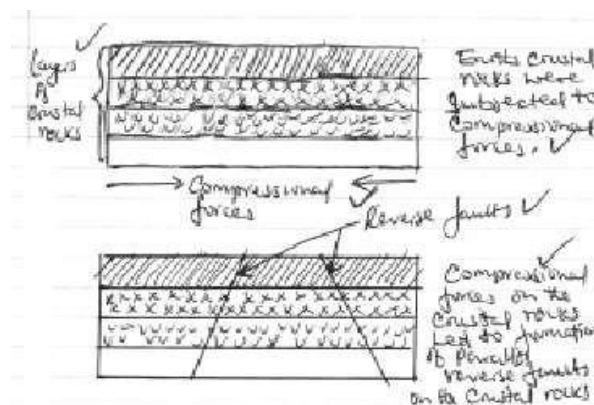 Layers
of
crustal
rocks
Earth's crustal
rocks were
subjected to
Compressional
forces.
Compressional
forces
Reverse faults
Compressional
forces on the
crustal rocks
led to formation
of Parallel
reverse faults
on the crustal rocks